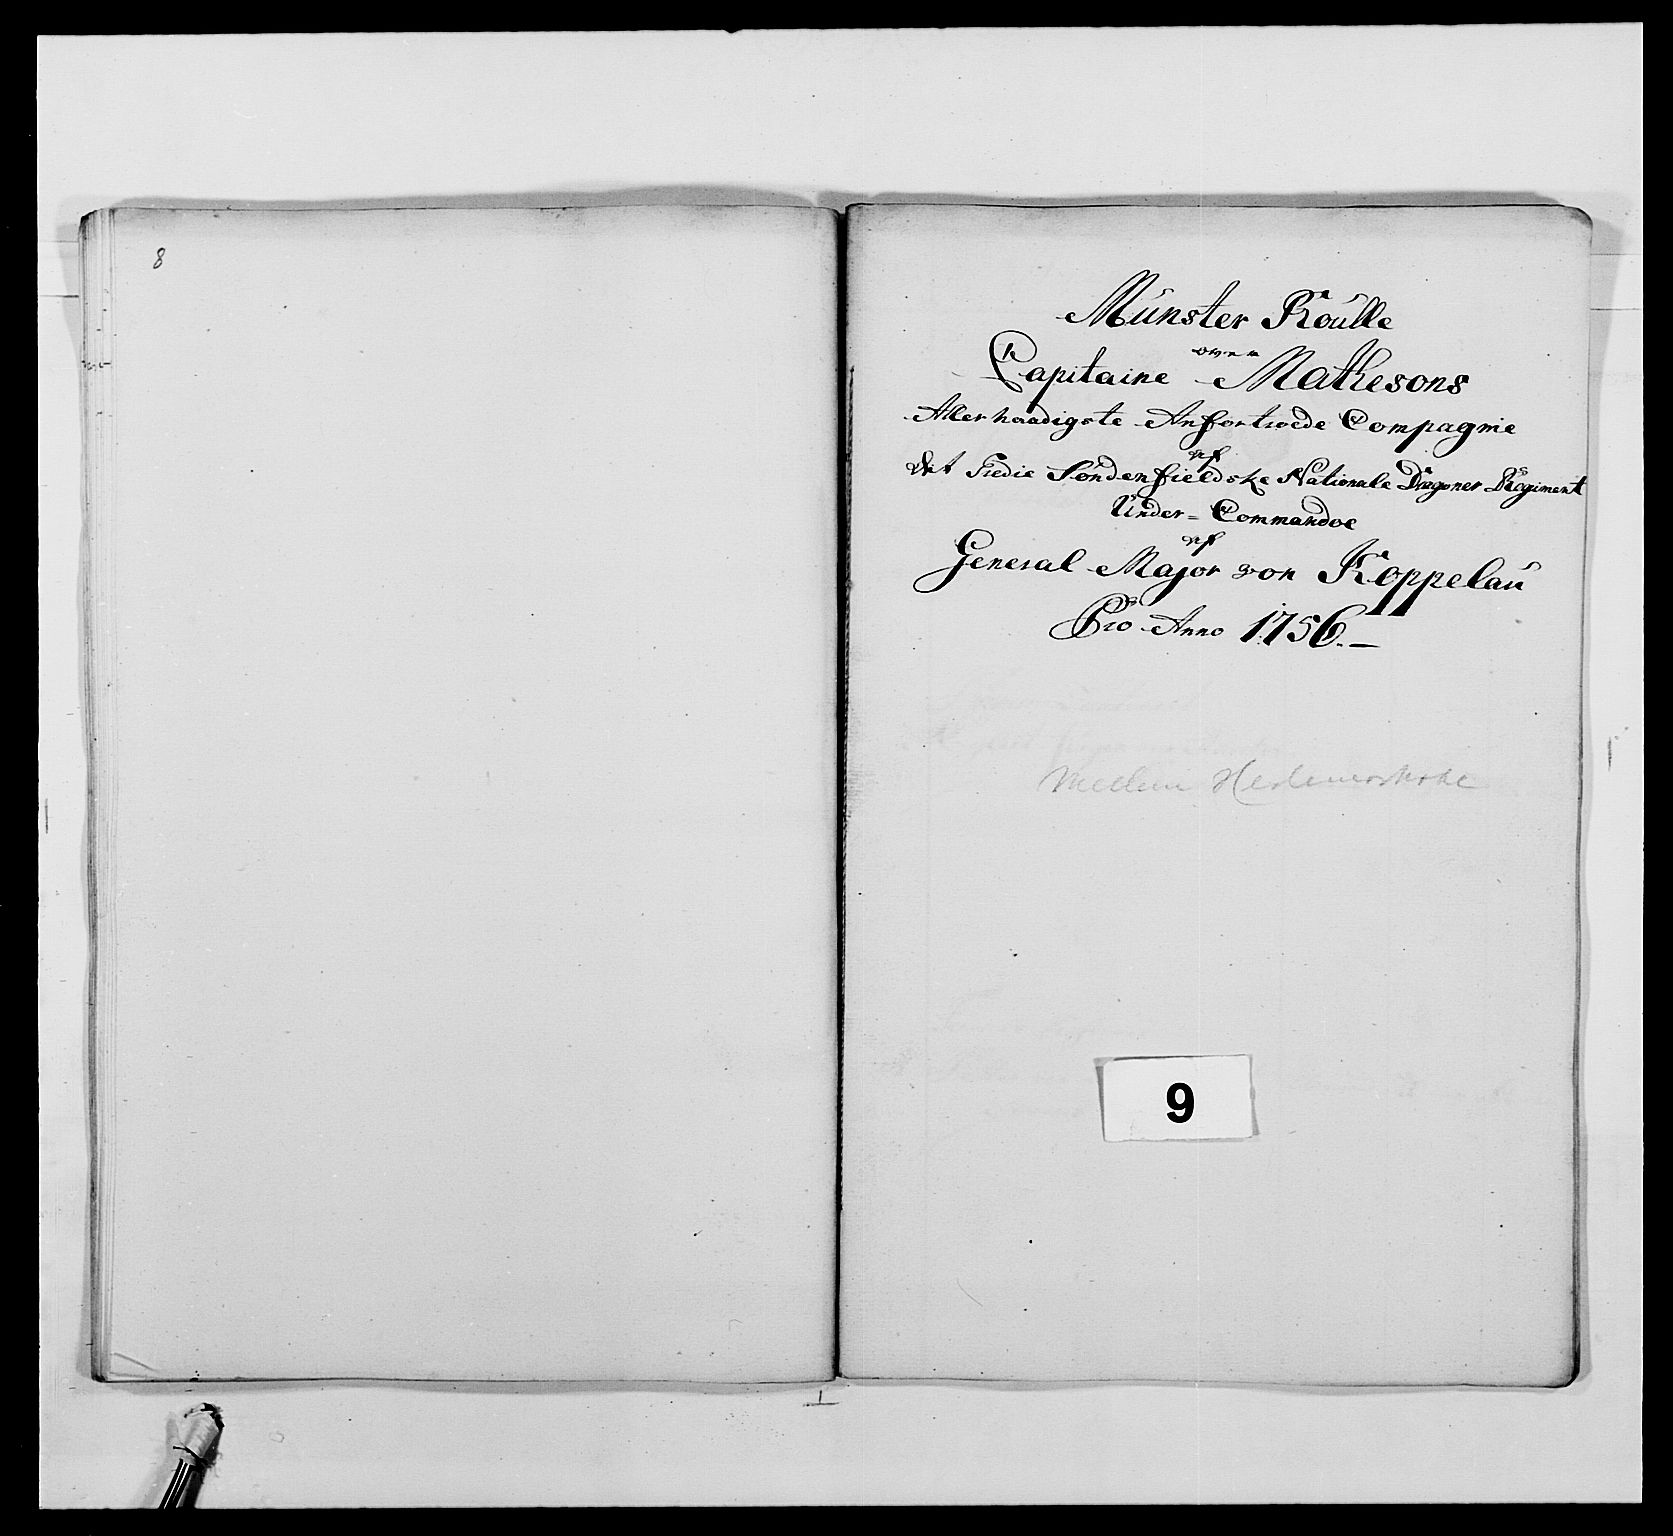 8
Münster Roulle
over
Capitaine Mathesons
Allernaadigste Anfortroede Compagnie
af
Det Tredie Søndenfieldske Nationale Dragoner Regiment
Under= Commandoe
af
General Major von Koppelau
Pro Anno 1756.
9